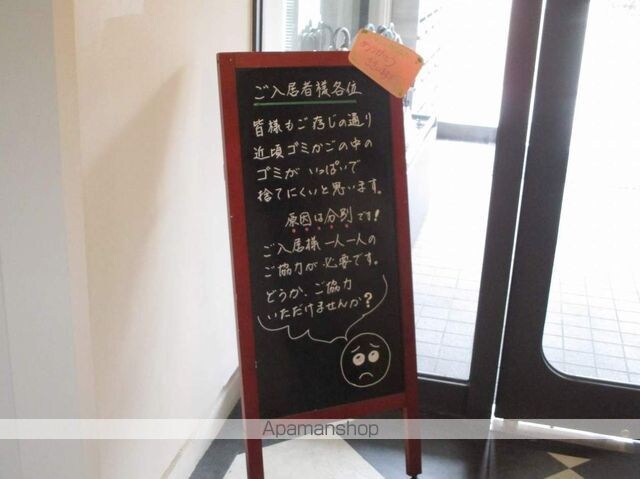 ご入居者様各位
皆様もご存じの通り
近頃ゴミかごの中の
ゴミが いっぱいで
捨てにくいと思います。
原因は分別です!
ご入居様 一人一人の
ご協力が必要です。
どうか、ご協力
いただけませんか?
Apamanshop